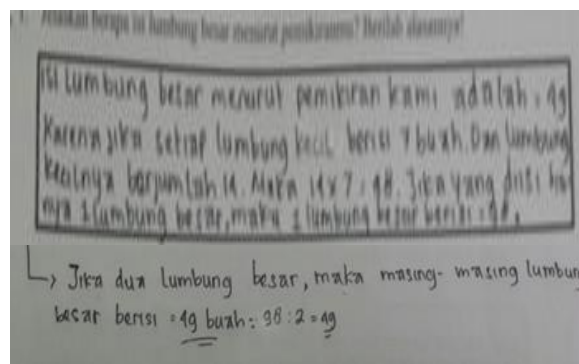 Jelaskan berapa isi lumbung besar menurut pemikiranmu? Berilah alasannya!
isi lumbung besar menurut pemikiran kami adalah : 49
Karena jika setiap lumbung kecil berisi 7 buah. Dan lumbung
kecilnya berjumlah 14. Maka 14 x 7 = 98. Jika yang diisi ha
nya 1 lumbung besar, maka 1 lumbung besar berisi = 98.
Jika dua lumbung besar, maka masing-masing lumbun
besar berisi = 49 buah : 98 : 2 = 49